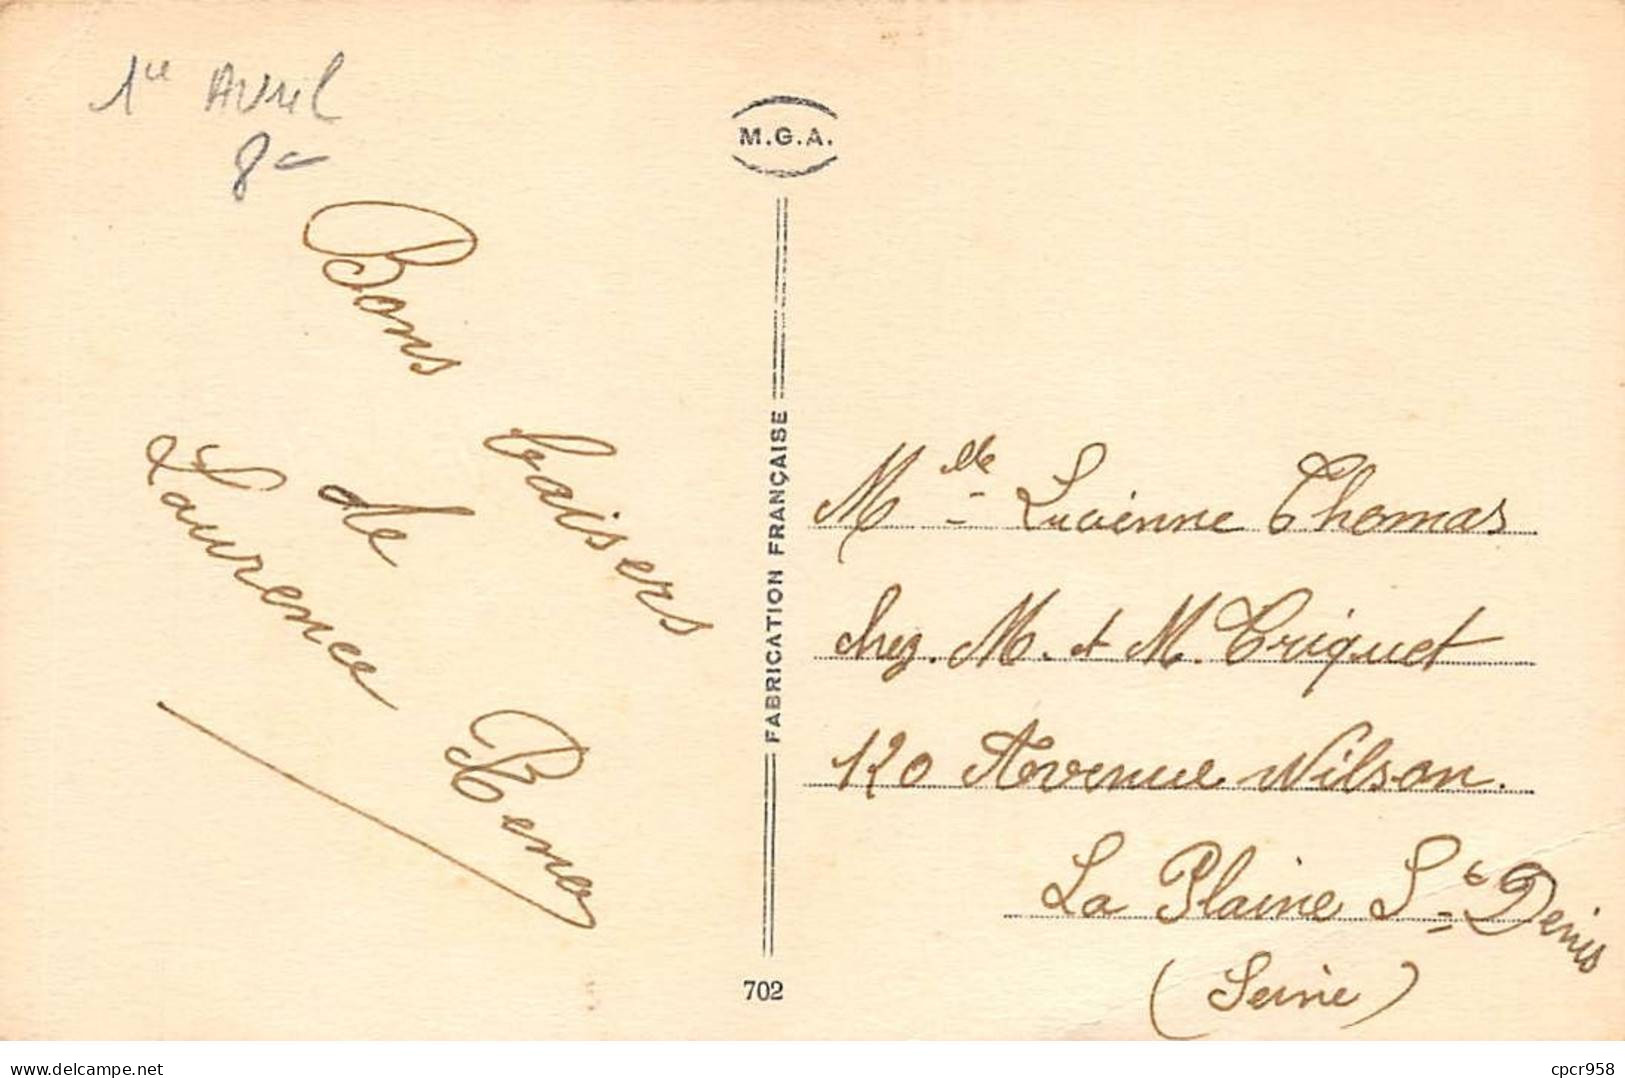 1er Avril
8-
M.G.A.
Bons baisers
de
Laurence
FABRICATION FRANÇAISE
702
Mlle Lucienne Thomas
chez. M. et M. Criquet
120 Avenue Wilson.
La Plaine St Denis
(Seine)
delcampe.net
cpcr958